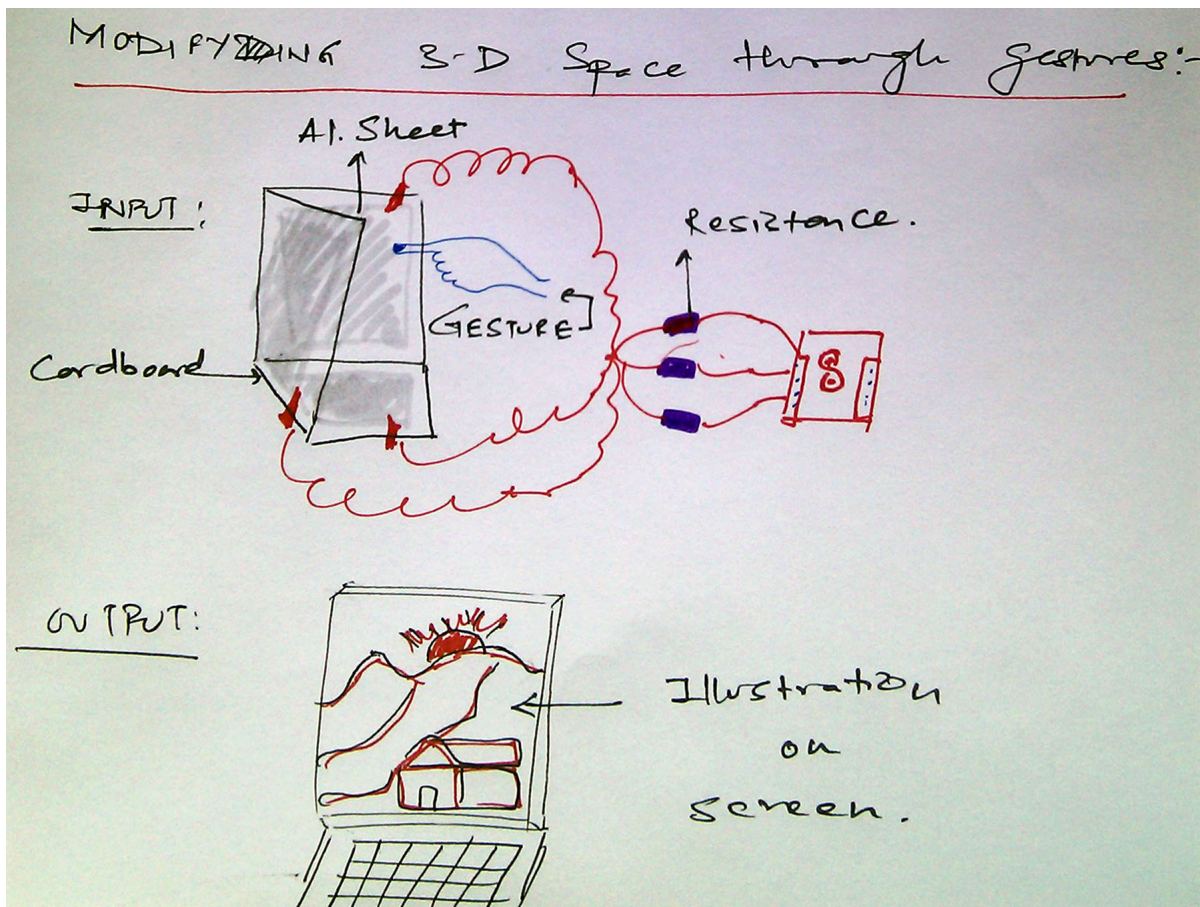 MODIFYING 3-D Space through Gestures:-
Al. Sheet
INPUT:
Resistance.
GESTURE
Cardboard
8
OUTPUT:
Illustration
on
screen.